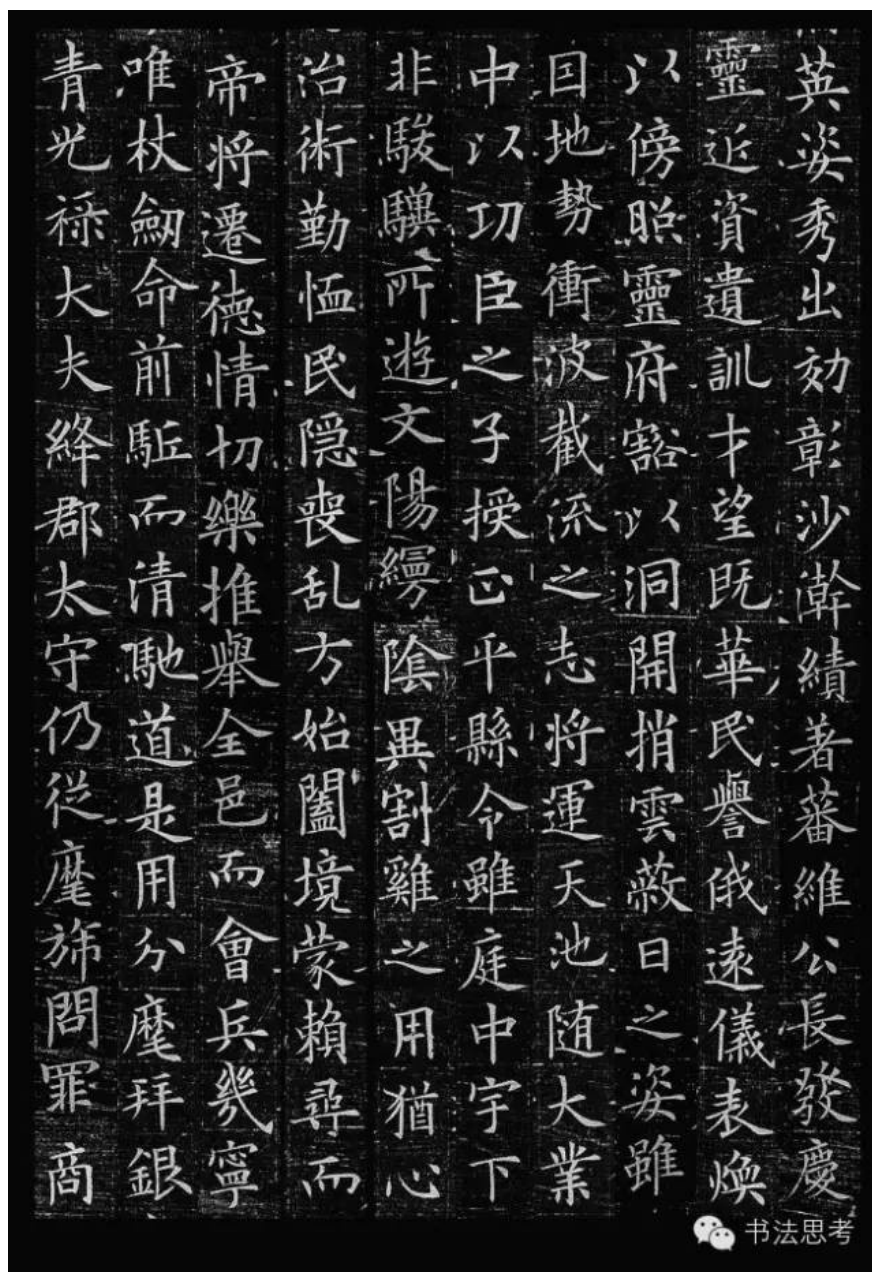 英姿秀出効彰沙澣績著蕃維公長發慶
靈近資遺訓才望既華民譽俄遠儀表煥
以傍照靈府豁以洞開捎雲蔽日之姿雖
囙地勢衝波截流之志将運天池随大業
中以功臣之子授正平縣令雖庭中宇下
非駿驥所遊文陽縵陰異割雞之用猶心
治術勤恤民隠喪乱方始闔境蒙賴尋而
帝将遷徳情切樂推舉全邑而會兵幾寧
唯杖劒命前駈而清馳道是用分麾拜銀
青光禄大夫絳郡太守仍從麾旆問罪商
书法思考